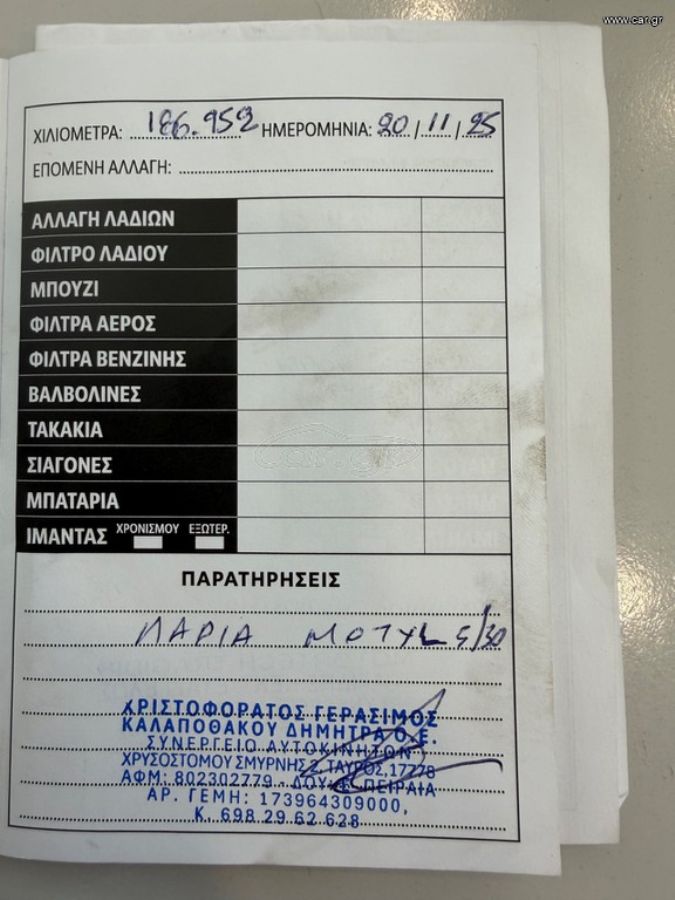 www.car.gr
ΧΙΛΙΟΜΕΤΡΑ: 186.952 ΗΜΕΡΟΜΗΝΙΑ: 20/11/25
ΕΠΟΜΕΝΗ ΑΛΛΑΓΗ:
ΑΛΛΑΓΗ ΛΑΔΙΩΝ
ΦΙΛΤΡΟ ΛΑΔΙΟΥ
ΜΠΟΥΖΙ
ΦΙΛΤΡΑ ΑΕΡΟΣ
ΦΙΛΤΡΑ ΒΕΝΖΙΝΗΣ
ΒΑΛΒΟΛΙΝΕΣ
ΤΑΚΑΚΙΑ
ΣΙΑΓΟΝΕΣ
ΜΠΑΤΑΡΙΑ
ΙΜΑΝΤΑΣ ΧΡΟΝΙΣΜΟΥ ΕΞΩΤΕΡ.
car.gr
ΠΑΡΑΤΗΡΗΣΕΙΣ
ΛΑΔΙΑ MOTYL 5/30
ΧΡΙΣΤΟΦΟΡΑΤΟΣ ΓΕΡΑΣΙΜΟΣ
ΚΑΛΑΠΟΘΑΚΟΥ ΔΗΜΗΤΡΑ Ο.Ε.
ΣΥΝΕΡΓΕΙΟ ΑΥΤΟΚΙΝΗΤΩΝ
ΧΡΥΣΟΣΤΟΜΟΥ ΣΜΥΡΝΗΣ 2, ΤΑΥΡΟΣ, 17778
ΑΦΜ: 802302779 - ΔΟΥ ΠΕΙΡΑΙΑ
ΑΡ. ΓΕΜΗ: 173964309000,
Κ. 698 29 62 628